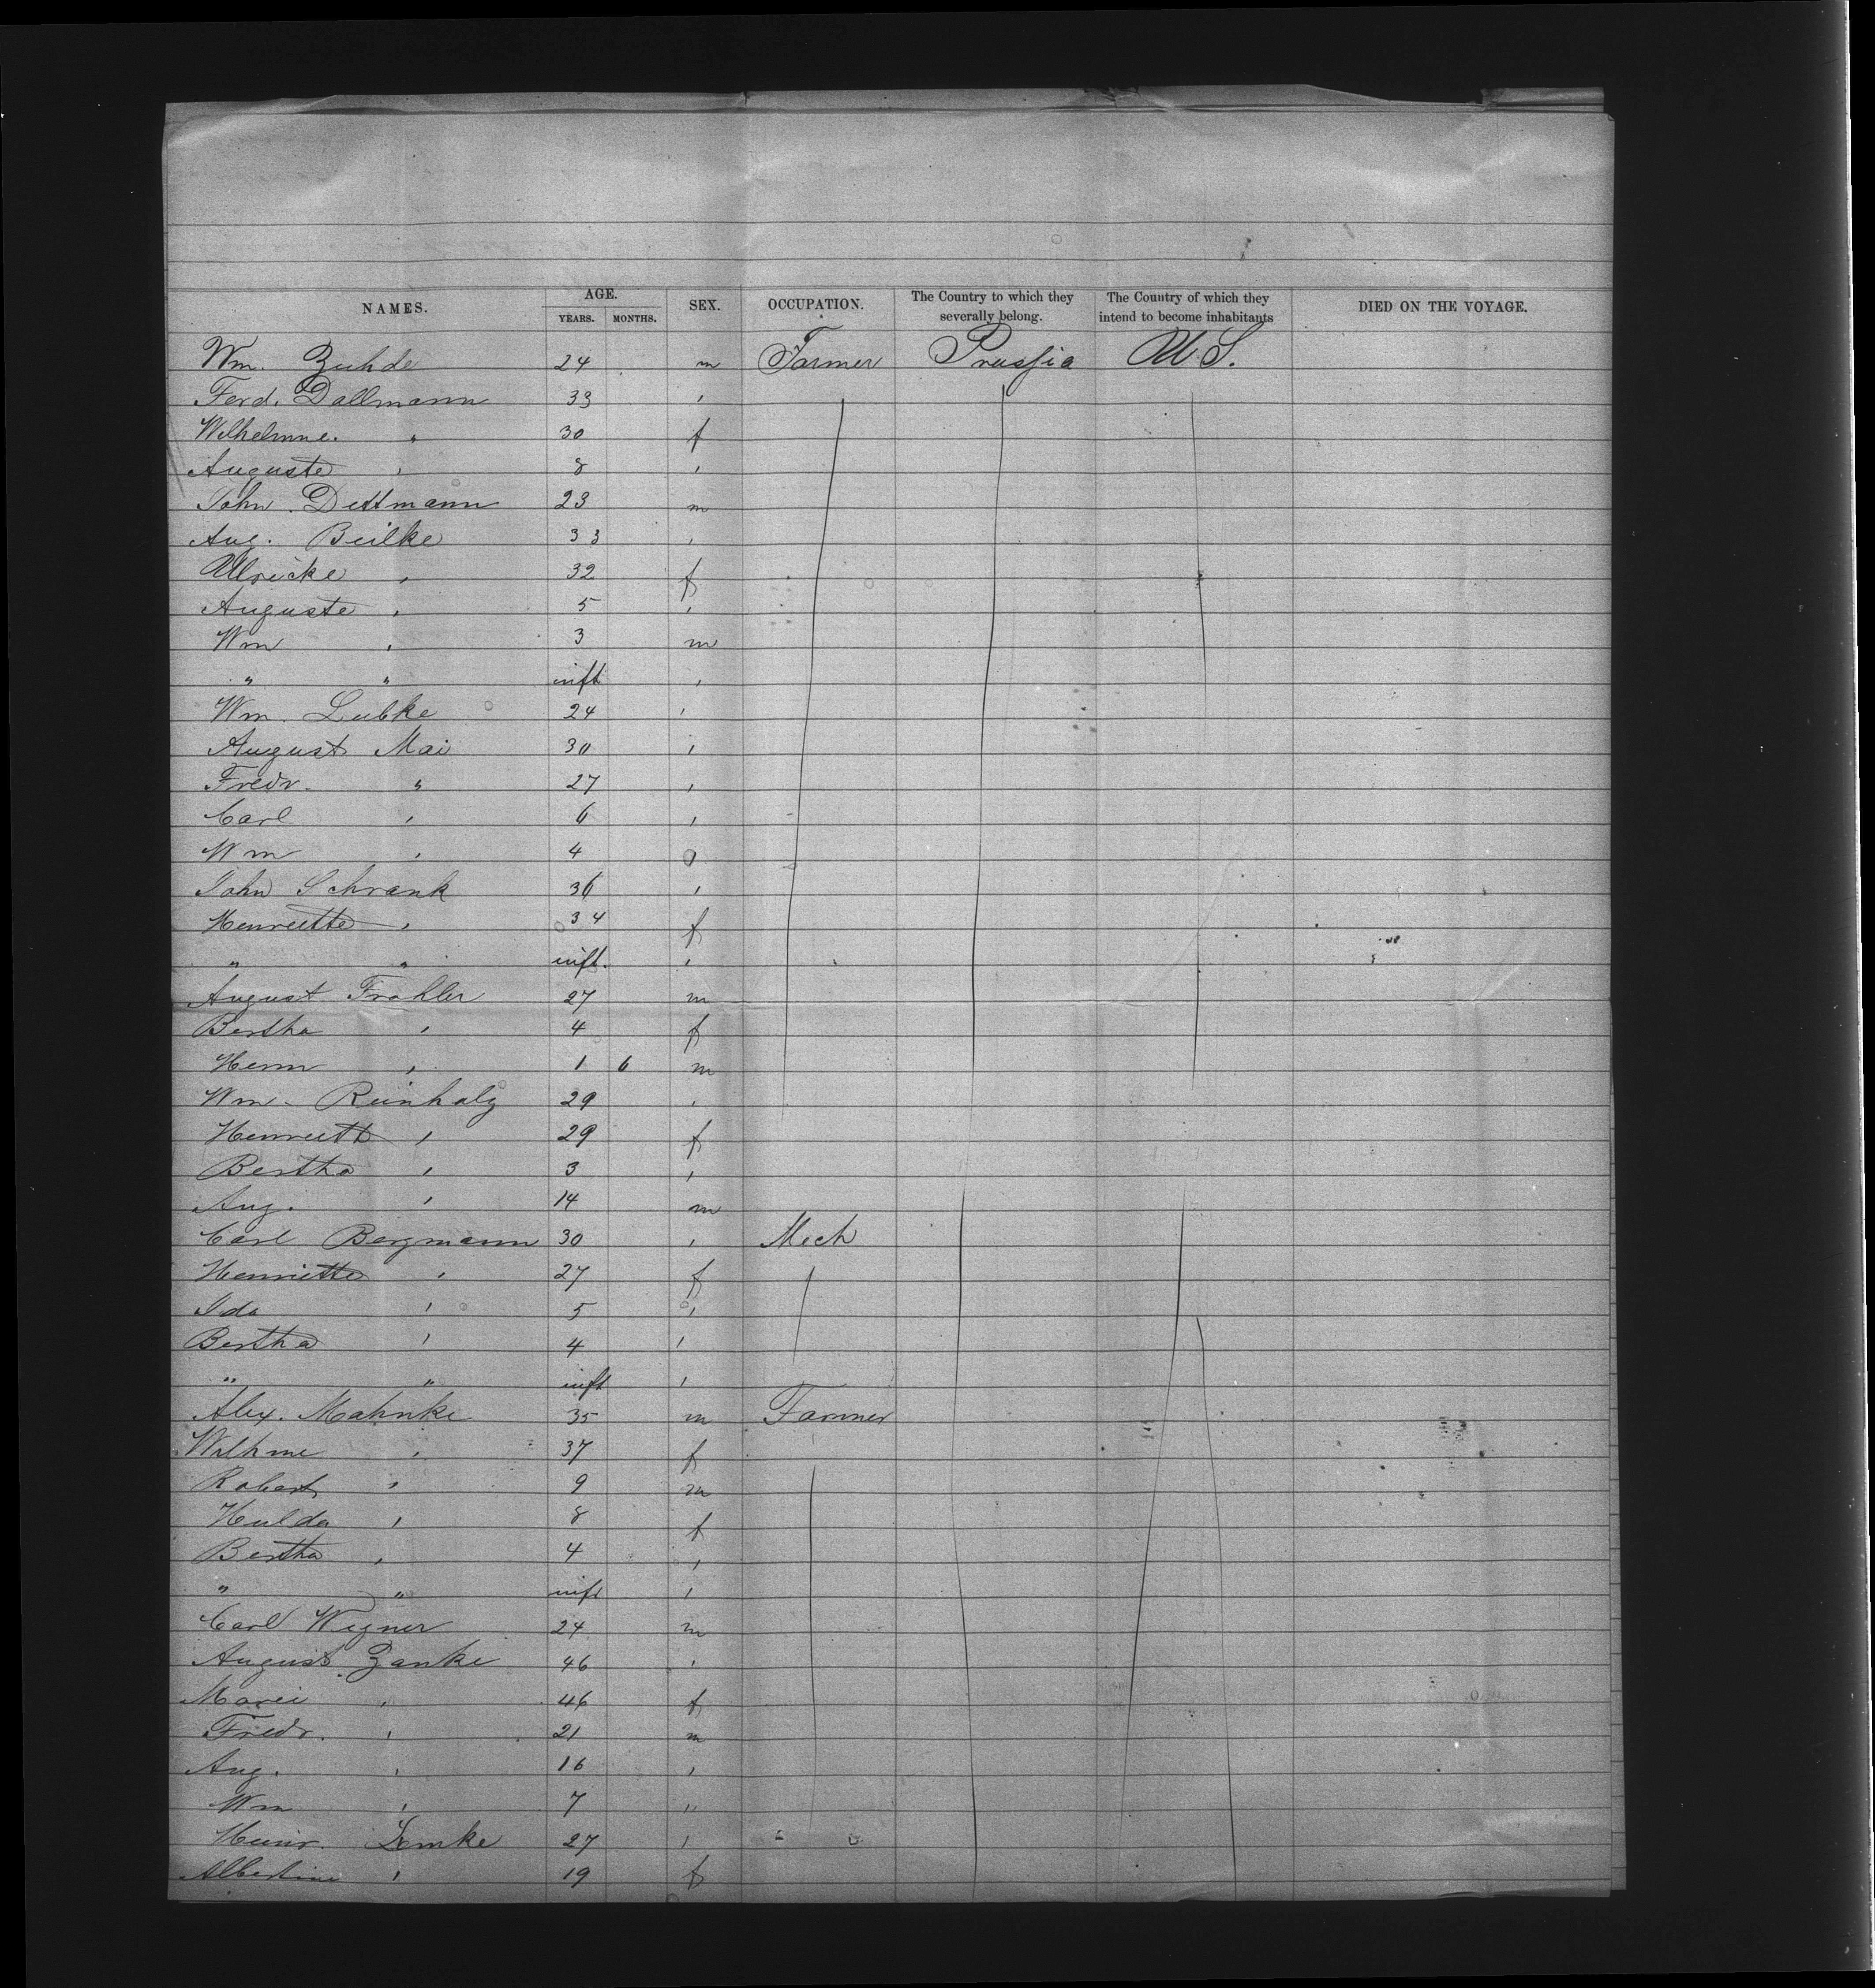 NAMES. AGE. YEARS. MONTHS. SEX. OCCUPATION. The Country to which they severally belong. The Country of which they intend to become inhabitants DIED ON THE VOYAGE.
Wm. Zuhde 24 m Farmer Prussia U.S.
Ferd. Dallmann 33 '
Wilhelmne. " 30 f
Auguste ' 8 '
John. Dettmann 23 m
Aug. Beilke 33 '
Ulricke ' 32 f
Auguste ' 5 '
Wm ' 3 m
" " inft '
Wm. Lubke 24 '
August Mai 30 '
Fredr. " 27 '
Carl ' 6 '
Wm ' 4
John Schrank 36 '
Henriette ' 34 f
" " inft. '
August Frohler 27 m
Bertha ' 4 f
Herm ' 1 6 m
Wm. Reinholz 29 '
Henriett ' 29 f
Bertha ' 3 '
Aug. ' 14 m
Carl Bergmann 30 ' Mech
Henriette ' 27 f
Ida ' 5 '
Bertha ' 4 '
" " inft '
Alex. Mahnke 35 m Farmer
Wilhme ' 37 f
Robert ' 9 m
Hulda ' 8 f
Bertha ' 4 '
" " inft '
Carl Wegner 24 m
August Zanke 46 '
Marie ' 46 f
Fredr. ' 21 m
Aug. ' 16 '
Wm ' 7 "
Heinr. Lemke 27 '
Albertine ' 19 f